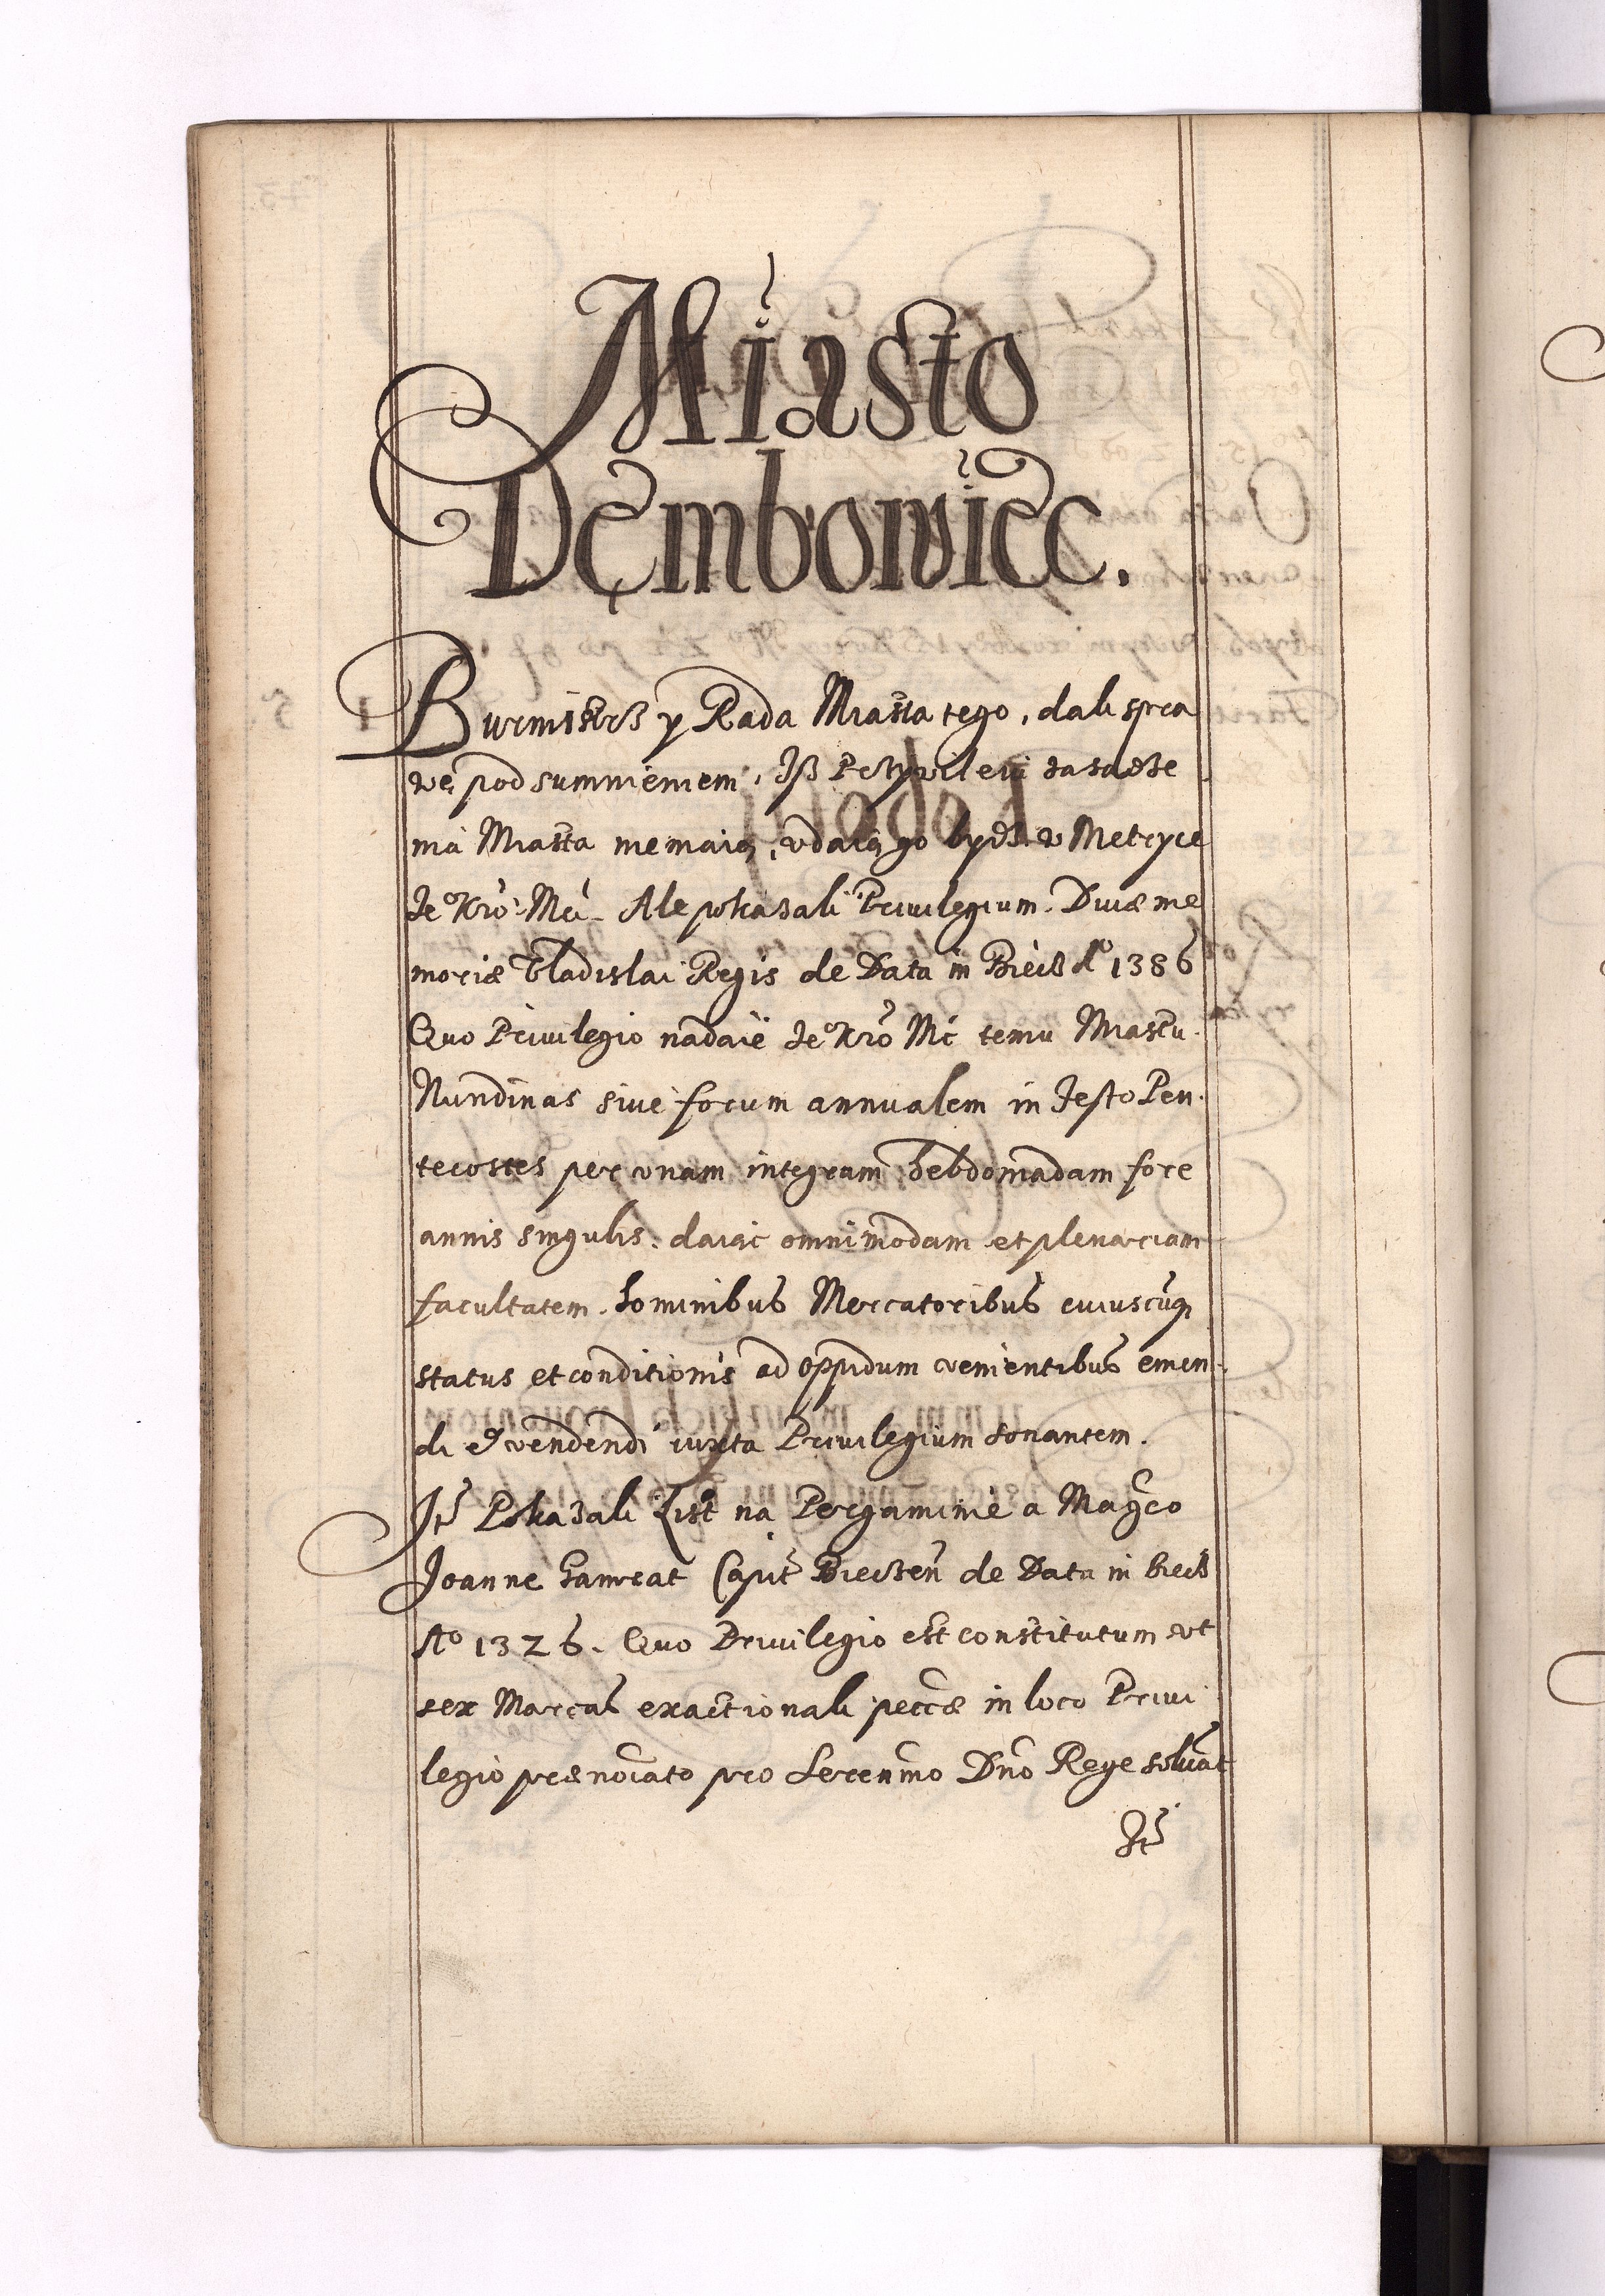 Miasto
Dęmbowiec.
Burmistrz y Rada Miasta tego, dali spra
wę pod sumnieniem, Iß Przywileiu zasadze
nia Miasta nie maią, udaią go bydz w Metryce
Je° Kro: Mci. Ale pokazali Privilegium Divæ me
moriæ Vladislai Regis de Data in Biecz A° 1386
Quo Privilegio nadaie Je° Kro Mc temu Miastu
Nundinas sive forum annualem in Festo Pen
tecostes per vnam integram hebdomadam fore
annis singulis, daiąc omnimodam et plenariam
facultatem hominibus Mercatoribus cuiuscuqз
status et conditionis ad oppidum venientibus emen
di et vendendi iuxta Privilegium sonantem.
It Pokazali List na Pergaminie a Magco
Joanne Capit Bieczen de Data in Biecz
A° 1326. Quo Privilegio est constitutum vt
sex Marcas exactionali in loco Privi
legio prænotato pro Serenmo Dno Rege solvat
It